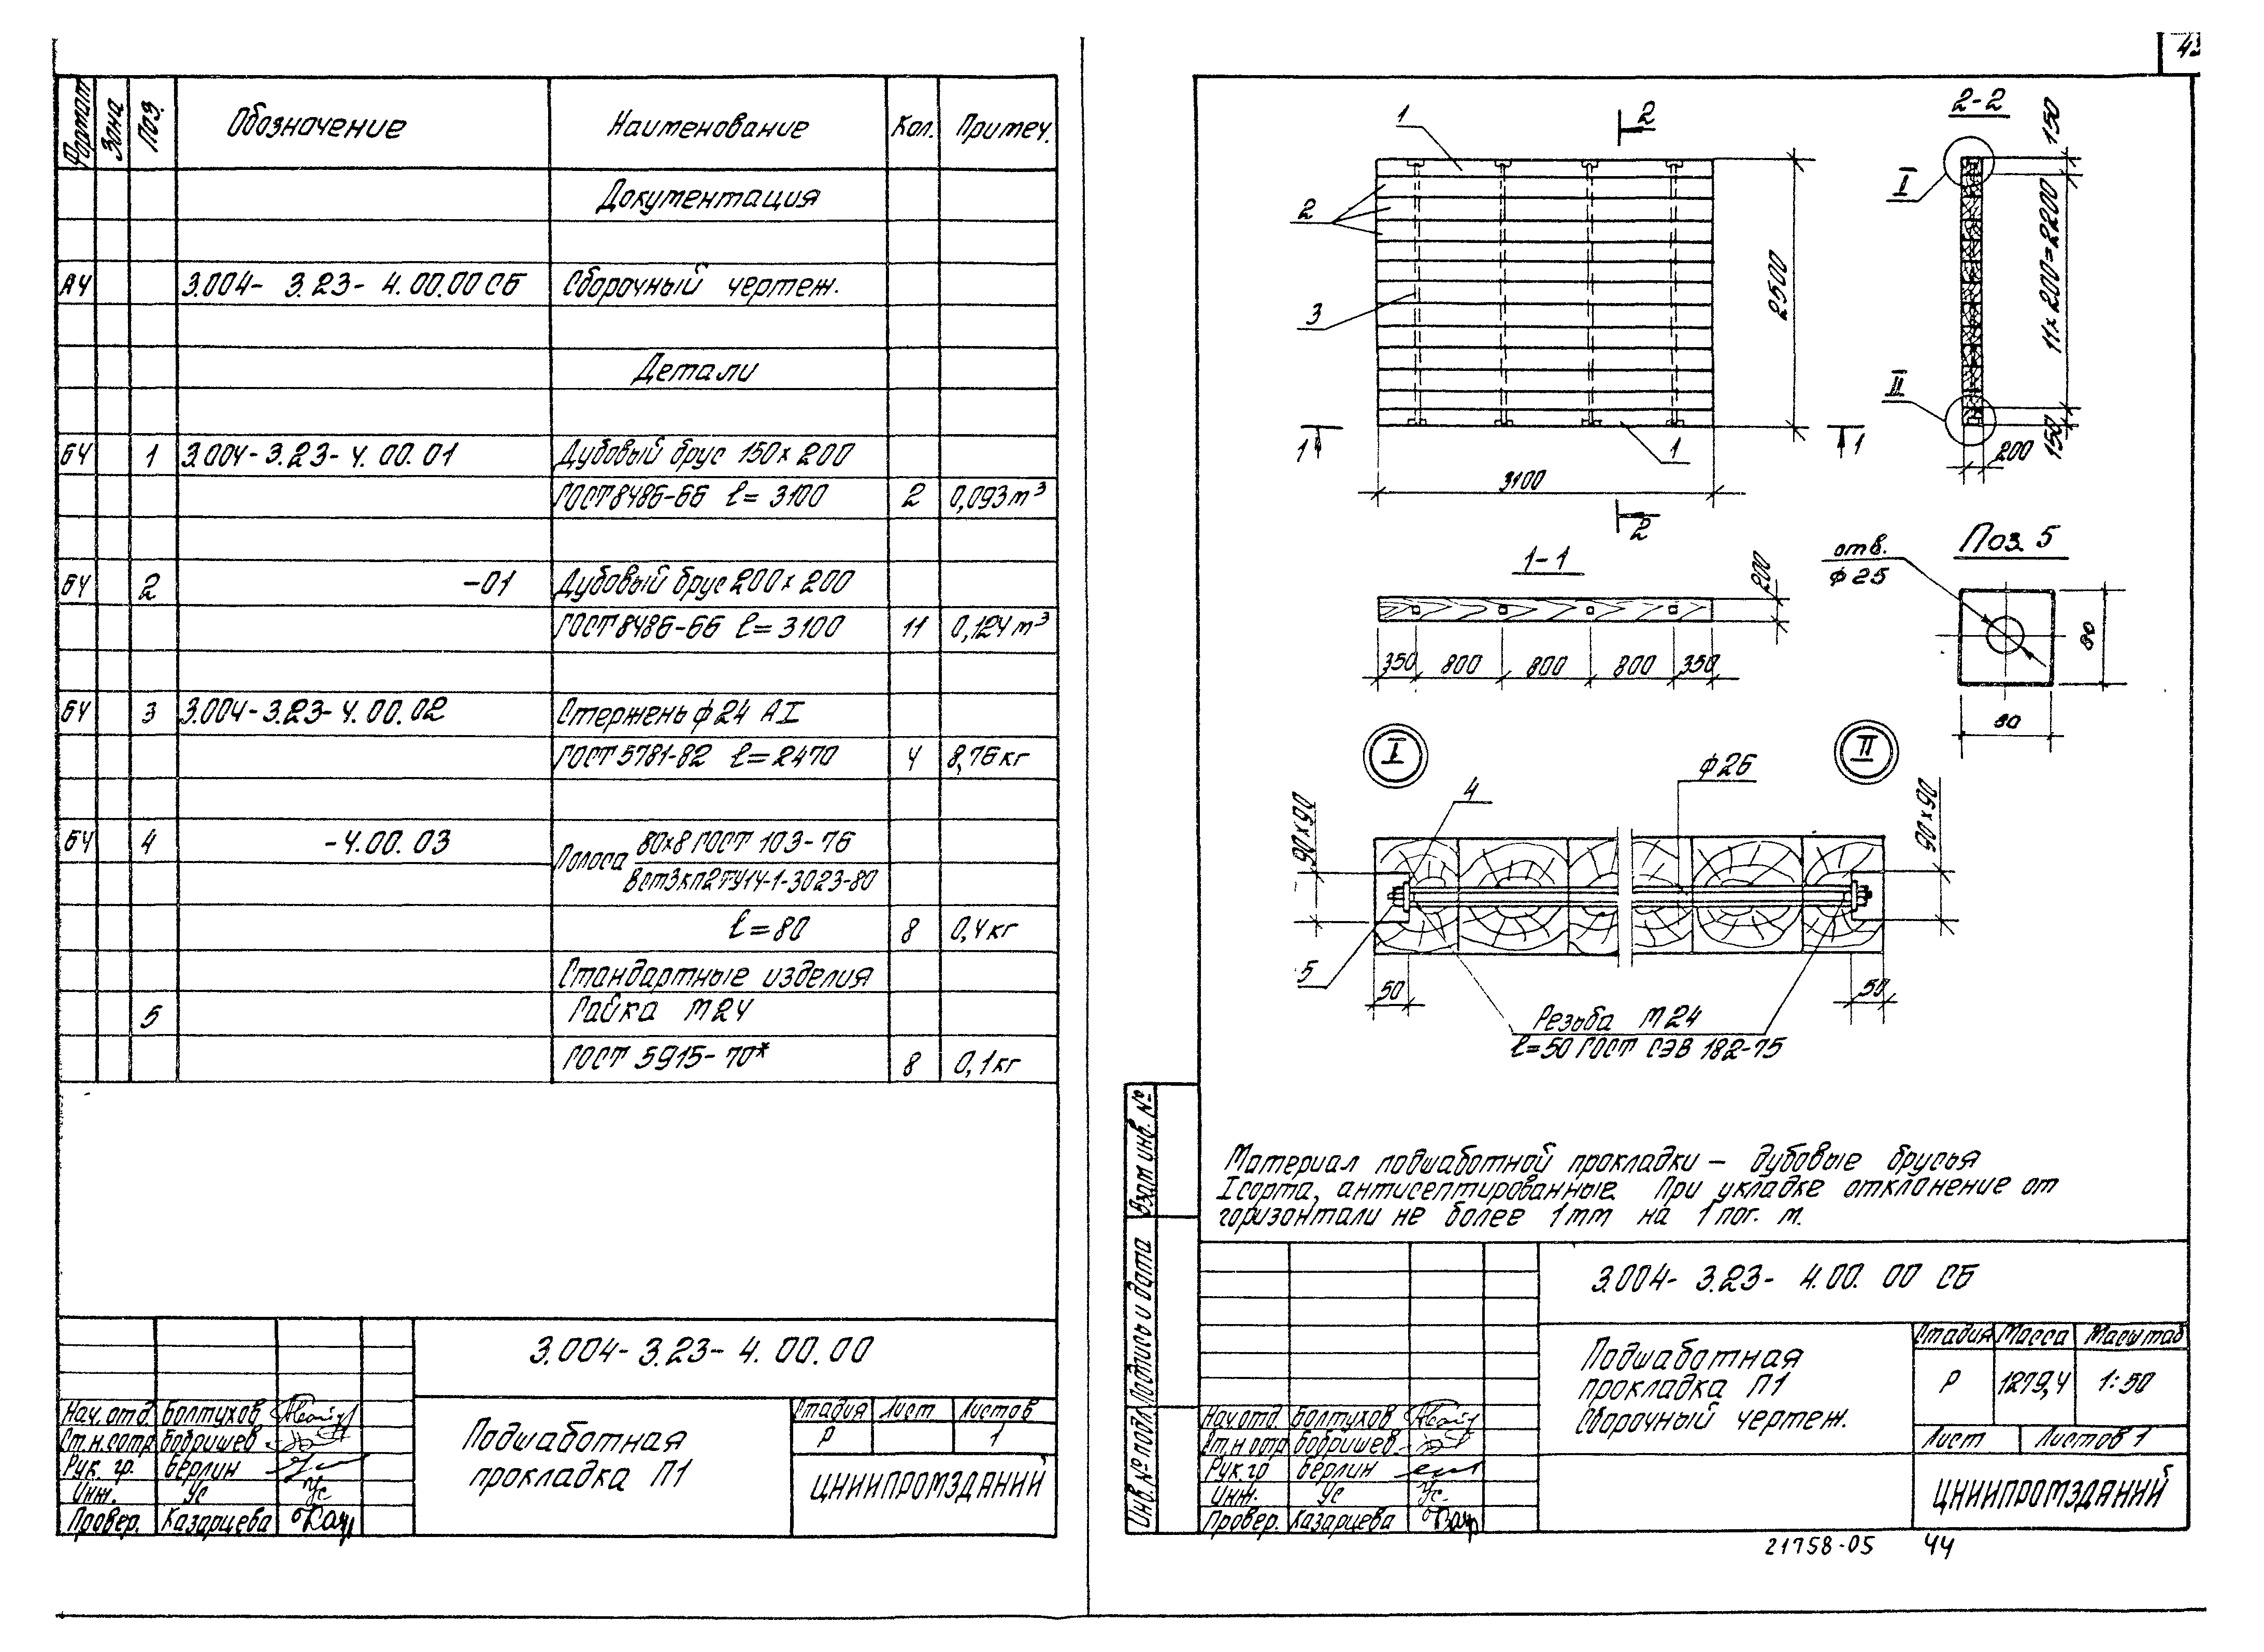 Формат Зона Поз. Обозначение Наименование Кол. Примеч.
Документация
А4 3.004- 3.23- 4.00.00 СБ Сборочный чертеж.
Детали
БЧ 1 3.004-3.23-4.00.01 Дубовый брус 150х200
ГОСТ 8486-66 ℓ=3100 2 0,093 m³
БЧ 2 -01 Дубовый брус 200х200
ГОСТ 8486-66 ℓ=3100 11 0,124 m³
БЧ 3 3.004-3.23-4.00.02 Стержень ф24 АI
ГОСТ 5781-82 ℓ=2470 4 8,76 кг
БЧ 4 -4.00.03 Полоса 80х8 ГОСТ 103-76
ВСт3кп2ТУ14-1-3023-80
ℓ=80 8 0,4 кг
Стандартные изделия
5 Гайка М24
ГОСТ 5915-70* 8 0,1 кг
3.004-3.23-4.00.00
Подшаботная
прокладка П1
Стадия Лист Листов
Р 1
ЦНИИПРОМЗДАНИЙ
Нач.отд. Болтухов
Ст.н.сотр. Бобришев
Рук. гр. Берлин
Инж. Ус
Провер. Казарцева
1
2
2-2
150
I
2
3
2500
11х200=2200
II
1
1
1
200
150
3100
2
1-1
200
отв.
ф25
Поз. 5
80
80
350 800 800 800 350
I
II
ф26
4
90х90
90х90
5
50
50
Резьба М24
ℓ=50 ГОСТ СЭВ 182-75
Материал подшаботной прокладки – дубовые брусья
I сорта, антисептированные. При укладке отклонение от
горизонтали не более 1mm на 1 пог. м.
Взам инв. №
Подпись и дата
Инв.№ подл.
3.004- 3.23- 4.00. 00 СБ
Подшаботная
прокладка П1
Сборочный чертеж.
Стадия Масса Масштаб
Р 1279,4 1:50
Лист Листов 1
ЦНИИПРОМЗДАНИЙ
Нач.отд. Болтухов
Ст.н.отр. Бобришев
Рук.гр Берлин
Инж. Ус
Провер. Казарцева
21758-05 44